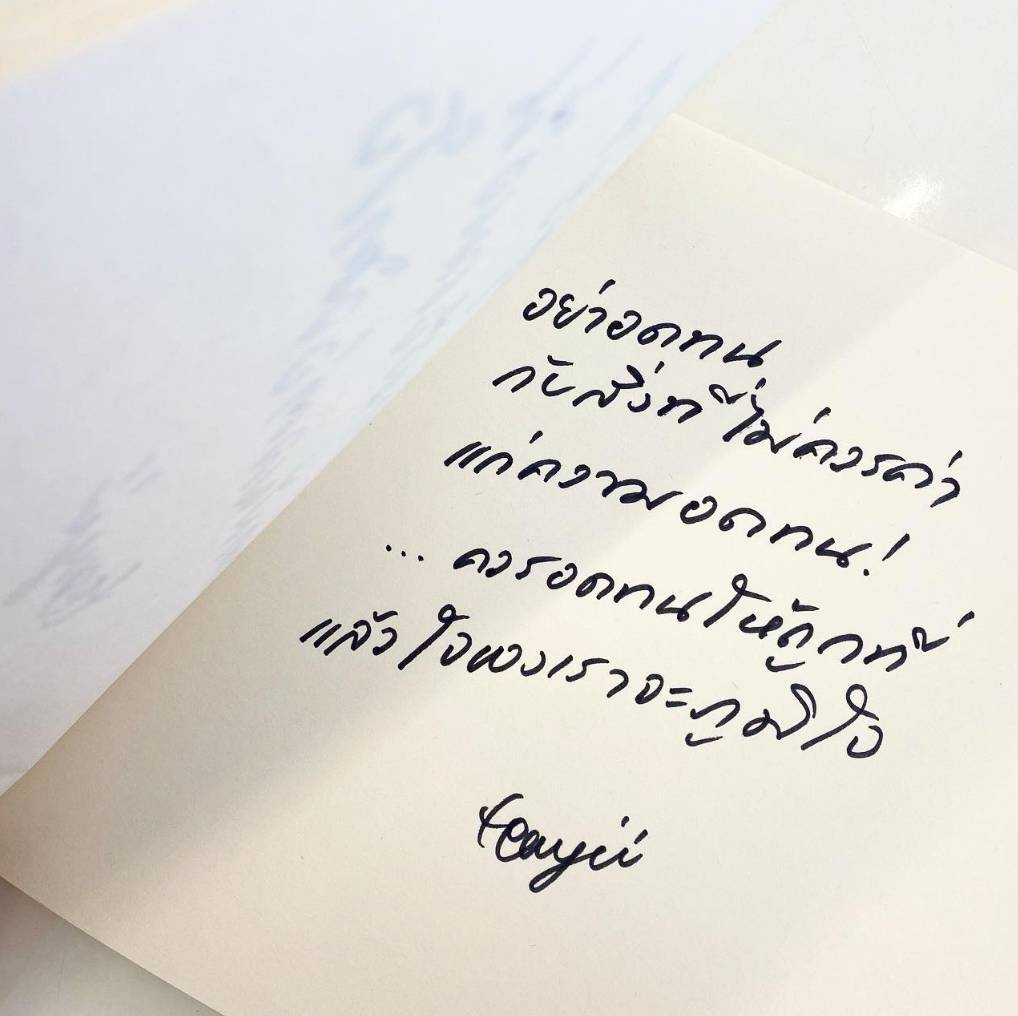 อย่าอดทน
กับสิ่งที่ไม่ควรค่า
แก่ความอดทน!
... ควรอดทนให้ถูกที่
แล้วใจของเราจะภูมิใจ